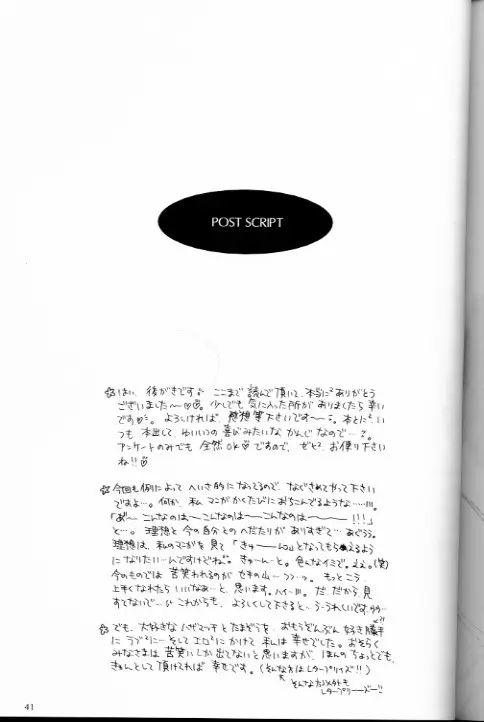 POST SCRIPT
はい、後がきです ここまで読んで頂いて、本当にありがとう
ございました〜 少しでも気に入った所がありましたら幸い
です。よろしければ、感想等下さいです〜 本とに、い
つも本出して、ゆいいつの喜びみたいなかんじなので…
アンケートのみでも全然OK♡ですので、ぜひお便り下さい
ね!!
今回も例によってへいさ的になってるので、なぐさめてやって下さい
ですよ…。何か、私マンガかくたびにおちこんでるような……
「あ゛〜こんなのは〜こんなのは〜こんなのは〜〜!!!」
と…。理想と今の自分とのへだたりがありすぎて…あぐぅ。
理想は、私のマンガを見て「きゅーん」となってもらえるよう
になりたいーんですけどね。きゅ〜んーと。色んなイミで。ええ。(笑)
今のものでは苦笑われるのがセキの山 もっとこう
上手くなれたらいいなあ…と思います。ハイ… だ、だから見
すてないで… これからも、よろしくして下さると、う・うれしいです
でも、大好きなとたまぞうを、おもうぞんぶん好き勝手
にラブにーそしてエロにかけて私は幸せでした。おそらく
みなさまは苦笑いしか出てないと思いますが、ほんのちょっとでも、
きゅんとして頂ければ幸せです。(そんな方はレタープリイズ!!)
そんな方以外も
レタープリーズー!!
41